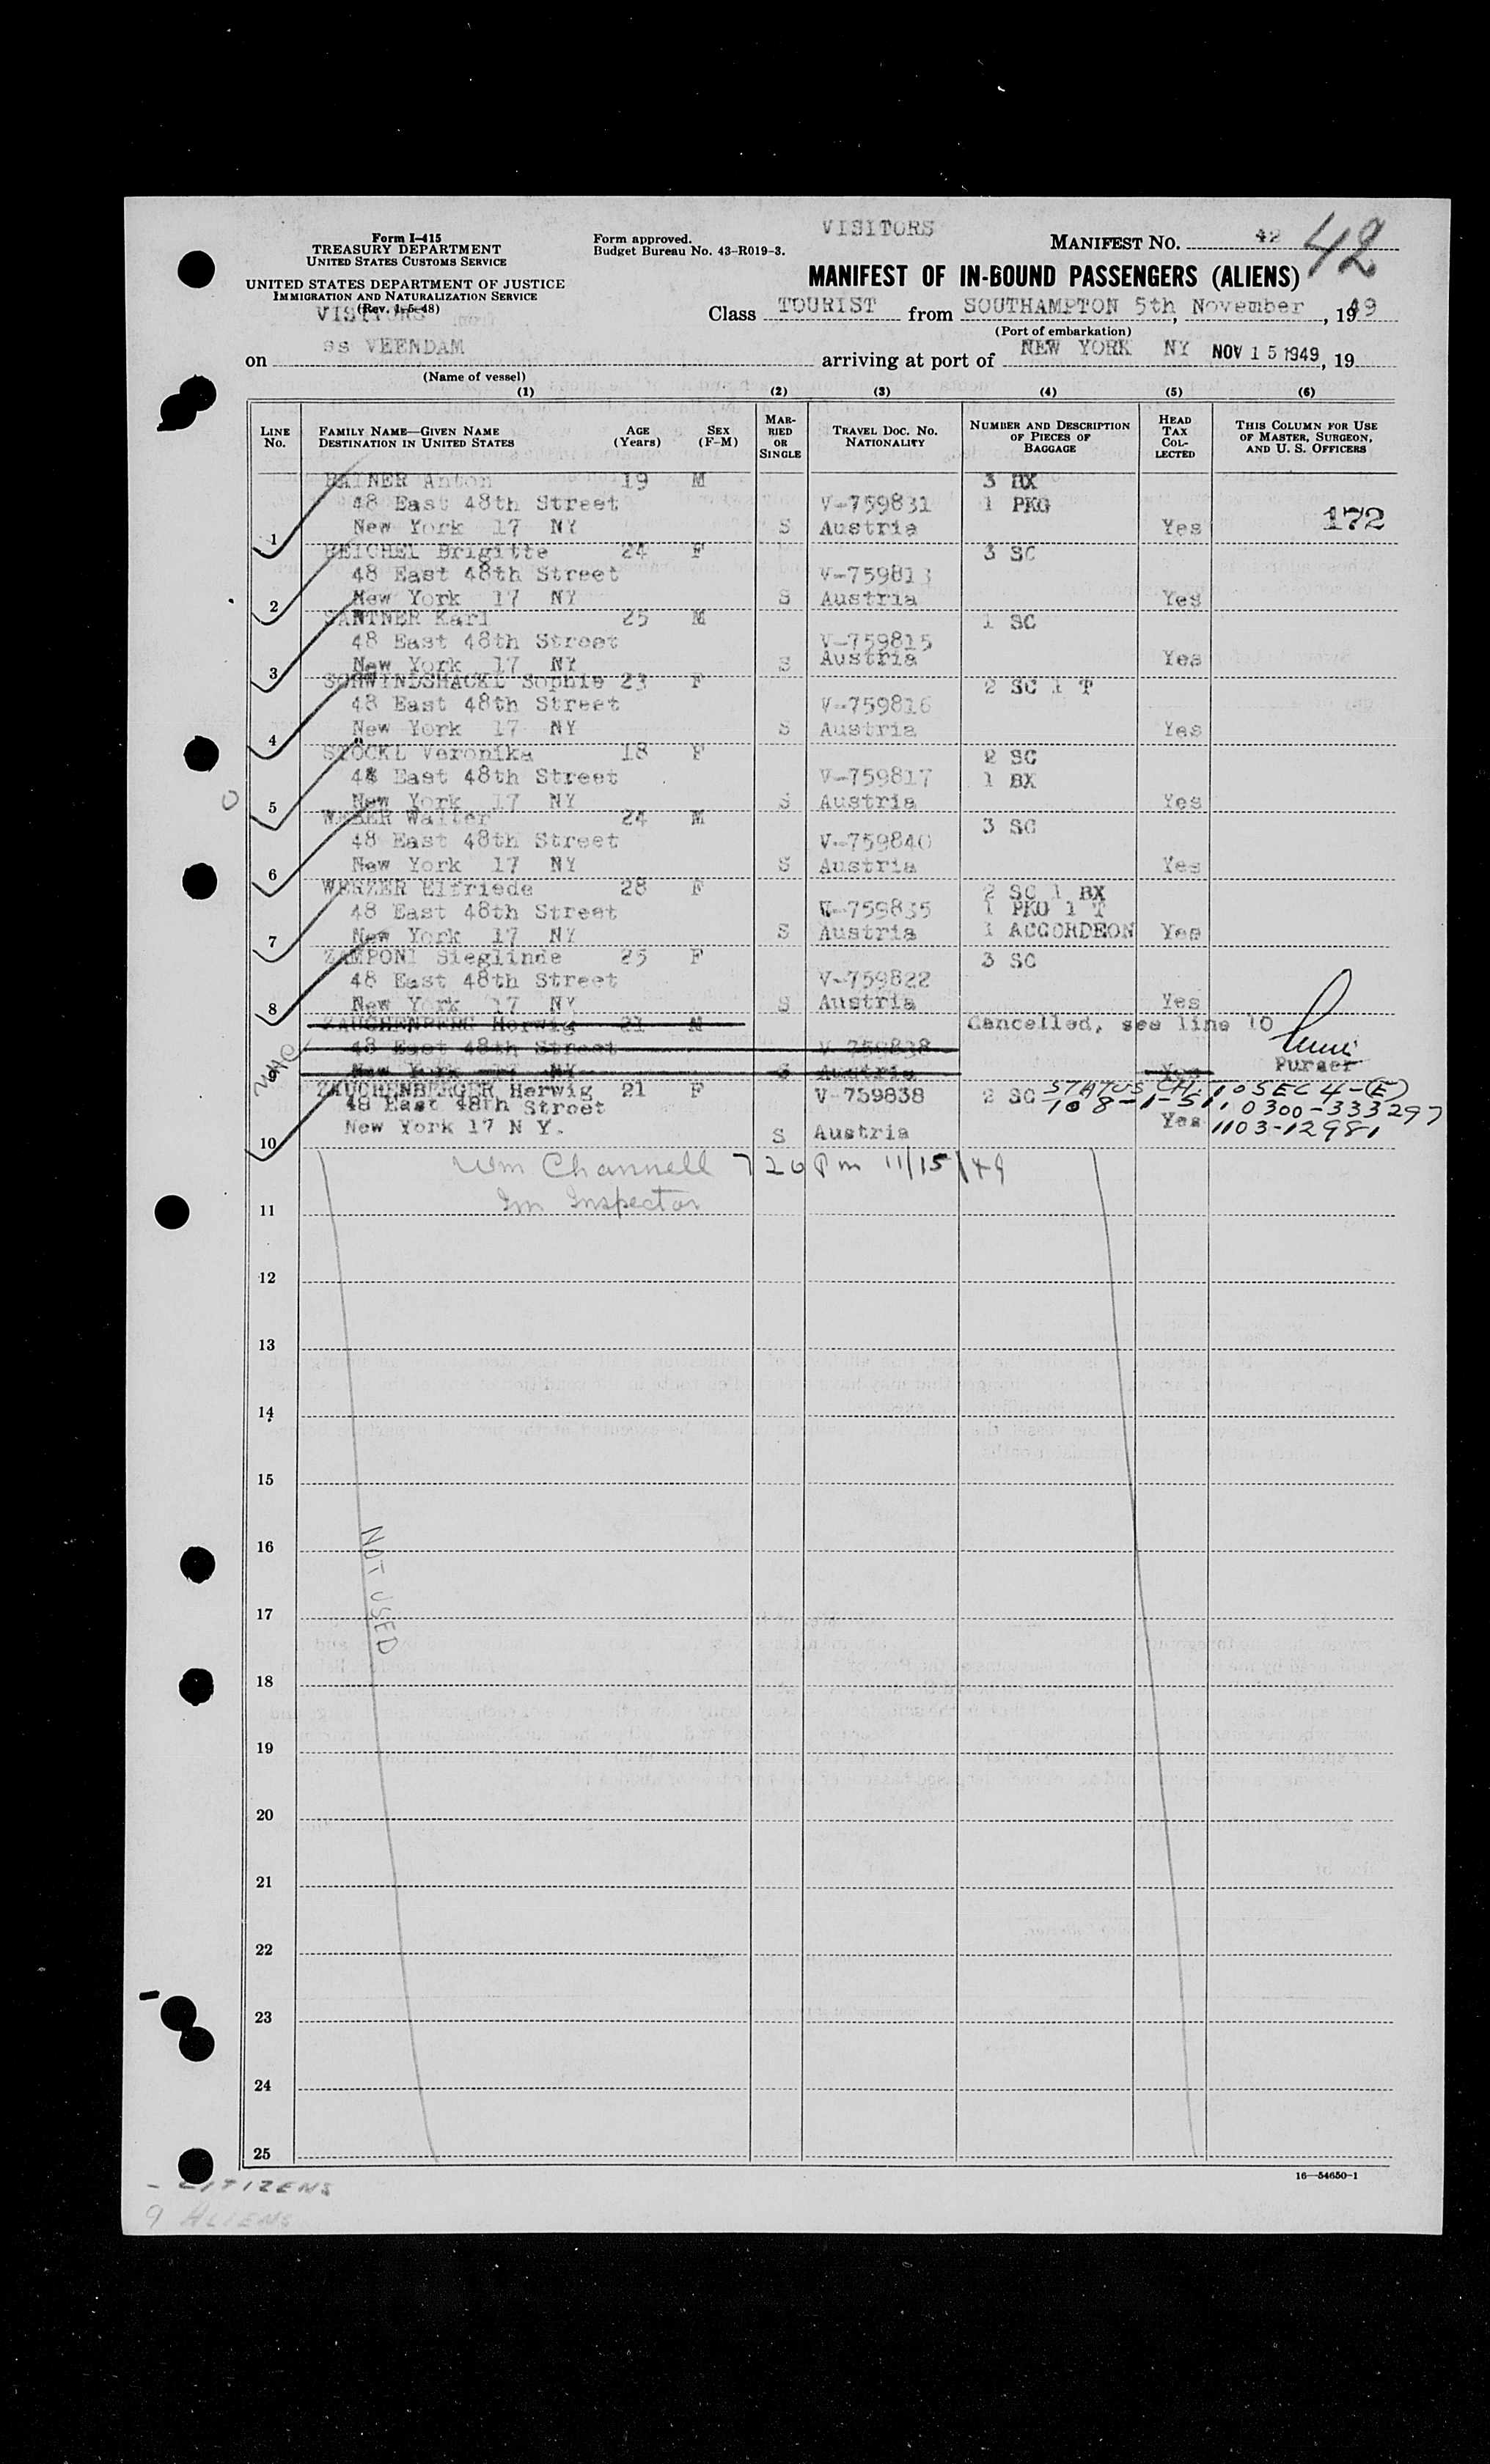 VISITORS
Form I-415
TREASURY DEPARTMENT
UNITED STATES CUSTOMS SERVICE
UNITED STATES DEPARTMENT OF JUSTICE
IMMIGRATION AND NATURALIZATION SERVICE
(Rev. 1-5-48)
VISITORS
Form approved.
Budget Bureau No. 43-R019-3.
MANIFEST No. 42 42
MANIFEST OF IN-BOUND PASSENGERS (ALIENS)
Class TOURIST from SOUTHAMPTON 5th, November, 1949
(Port of embarkation)
on ss VEENDAM arriving at port of NEW YORK NY NOV 15 1949, 19
(Name of vessel)
(1) (2) (3) (4) (5) (6)
LINE No. FAMILY NAME—GIVEN NAME DESTINATION IN UNITED STATES AGE (Years) SEX (F-M) MARRIED OR SINGLE TRAVEL DOC. No. NATIONALITY NUMBER AND DESCRIPTION OF PIECES OF BAGGAGE HEAD TAX COLLECTED THIS COLUMN FOR USE OF MASTER, SURGEON, AND U. S. OFFICERS
Anton 19 M 3 BX
48 East 48th Street V-759831 1 PKG
1 New York 17 NY S Austria Yes 172
Brigitte 24 F 3 SC
48 East 48th Street V-759813
2 New York 17 NY S Austria Yes
SANTNER Karl 25 M 1 SC
48 East 48th Street V-759815
3 New York 17 NY S Austria Yes
SCHWINDSHACKL Sophie 23 F 2 SC 1 T
48 East 48th Street V-759816
4 New York 17 NY S Austria Yes
STÖCKL Veronika 18 F 2 SC
48 East 48th Street V-759817 1 BX
5 New York 17 NY S Austria Yes
WEBER Walter 24 M 3 SC
48 East 48th Street V-759840
6 New York 17 NY S Austria Yes
Elfriede 28 F 2 SC 1 BX
48 East 48th Street V-759835 1 PKG 1 T
7 New York 17 NY S Austria 1 ACCORDEON Yes
ZAMPONI Sieglinde 25 F 3 SC
48 East 48th Street V-759822
8 New York 17 NY S Austria Yes
ZAUCHENBERG Herwig 21 M Cancelled, see line 10
48 East 48th Street V-759838
9 New York 17 NY S Austria Yes Purser
ZAUCHENBERGER Herwig 21 F V-759838 2 SC STATUS CH. TO SEC 4-(E)
48 East 48th Street 108-1-51, 0300-333297
10 New York 17 N Y. S Austria Yes 1103-12981
Wm Channell 7 20 Pm 11/15/49
Im Inspector
11
12
13
14
15
16
NOT USED
17
18
19
20
21
22
23
24
25
16—54650-1
- CITIZENS
9 ALIENS